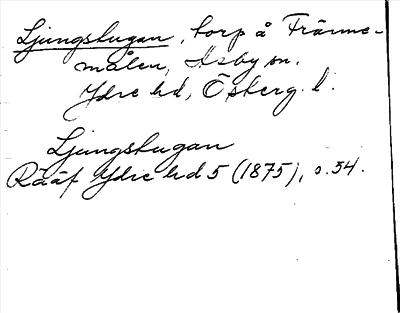 Ljungstugan, torp å Främme-
målen, Asby sn.
Ydre hd, Österg. l.
Ljungstugan
Rääf Ydre hd 5 (1875), s. 54.